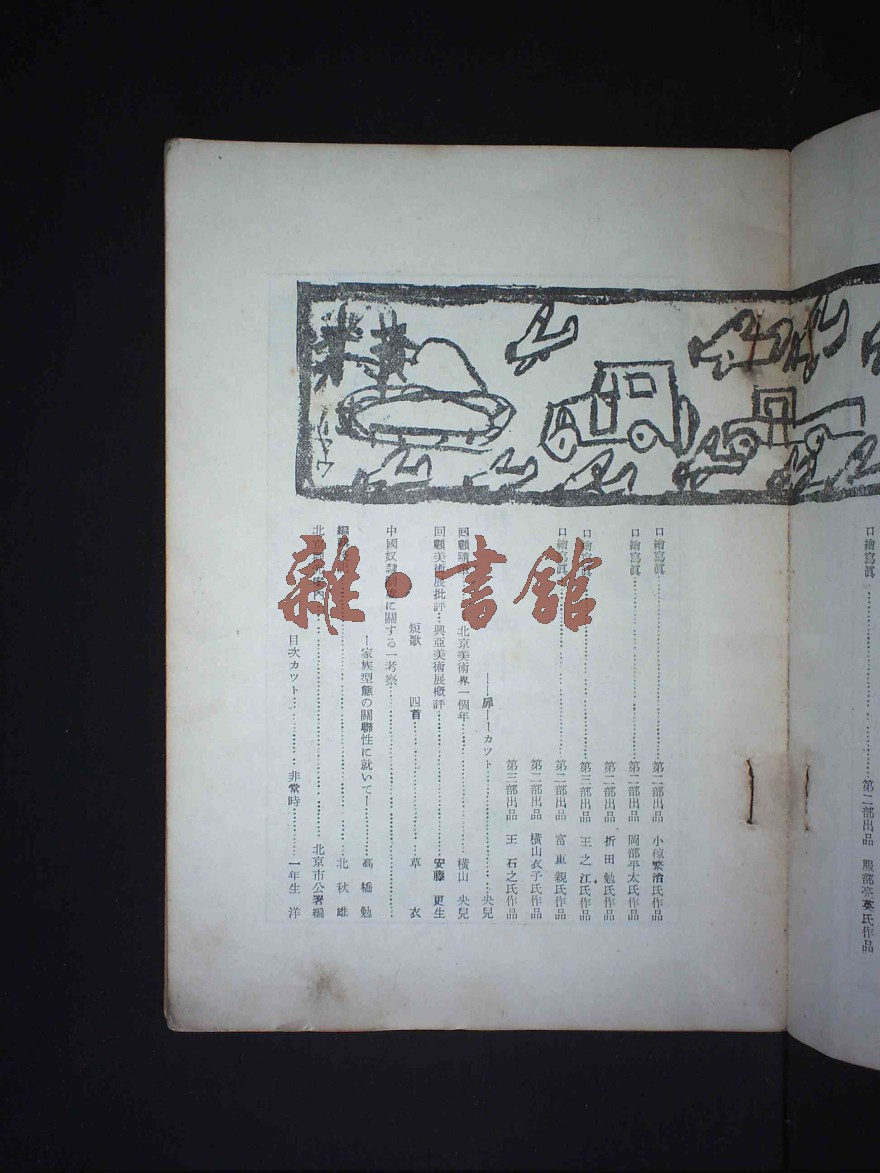 口繪寫眞……第二部出品 服部亮英氏作品
口繪寫眞……第二部出品 小椋繁治氏作品
口繪寫眞……第二部出品 岡部平太氏作品
第二部出品 折田勉氏作品
口繪寫眞……第三部出品 王之江氏作品
口繪寫眞……第二部出品 富重親氏作品
第二部出品 横山衣子氏作品
第三部出品 王石之氏作品
——扉——カツト……央兒
回顧 北京美術界一個年……横山央兒
回顧美術展批評…興亞美術展概評……安藤更生
短歌 四首……草衣
中國奴隷制度に關する一考察……
—家族型態の關聯性に就いて—……高橋勉
編……北秋雄
北京……北京市公署編
目次カツト……非常時……一年生 洋
雜·書館